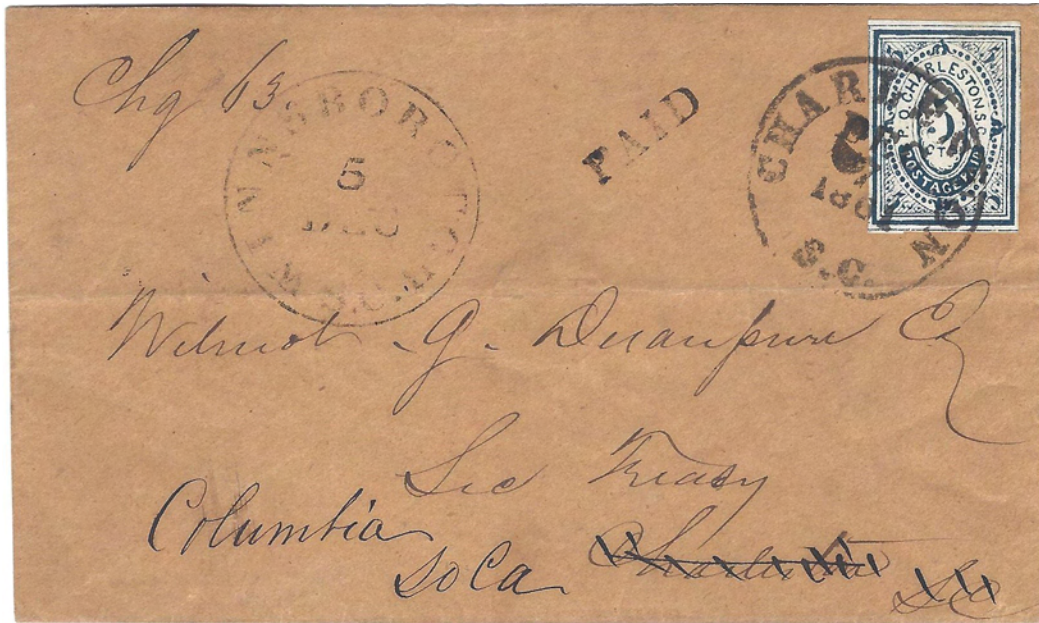 Chg 63.
WINNSBORO
S.C.
5
PAID
CHARLESTON
S.C.
1861
P.O. CHARLESTON, S.C.
5
CTS
POSTAGE PAID
Wilmot G. Desaussure Esq
Sec Treasy
Columbia
So Ca
Charleston
So Ca